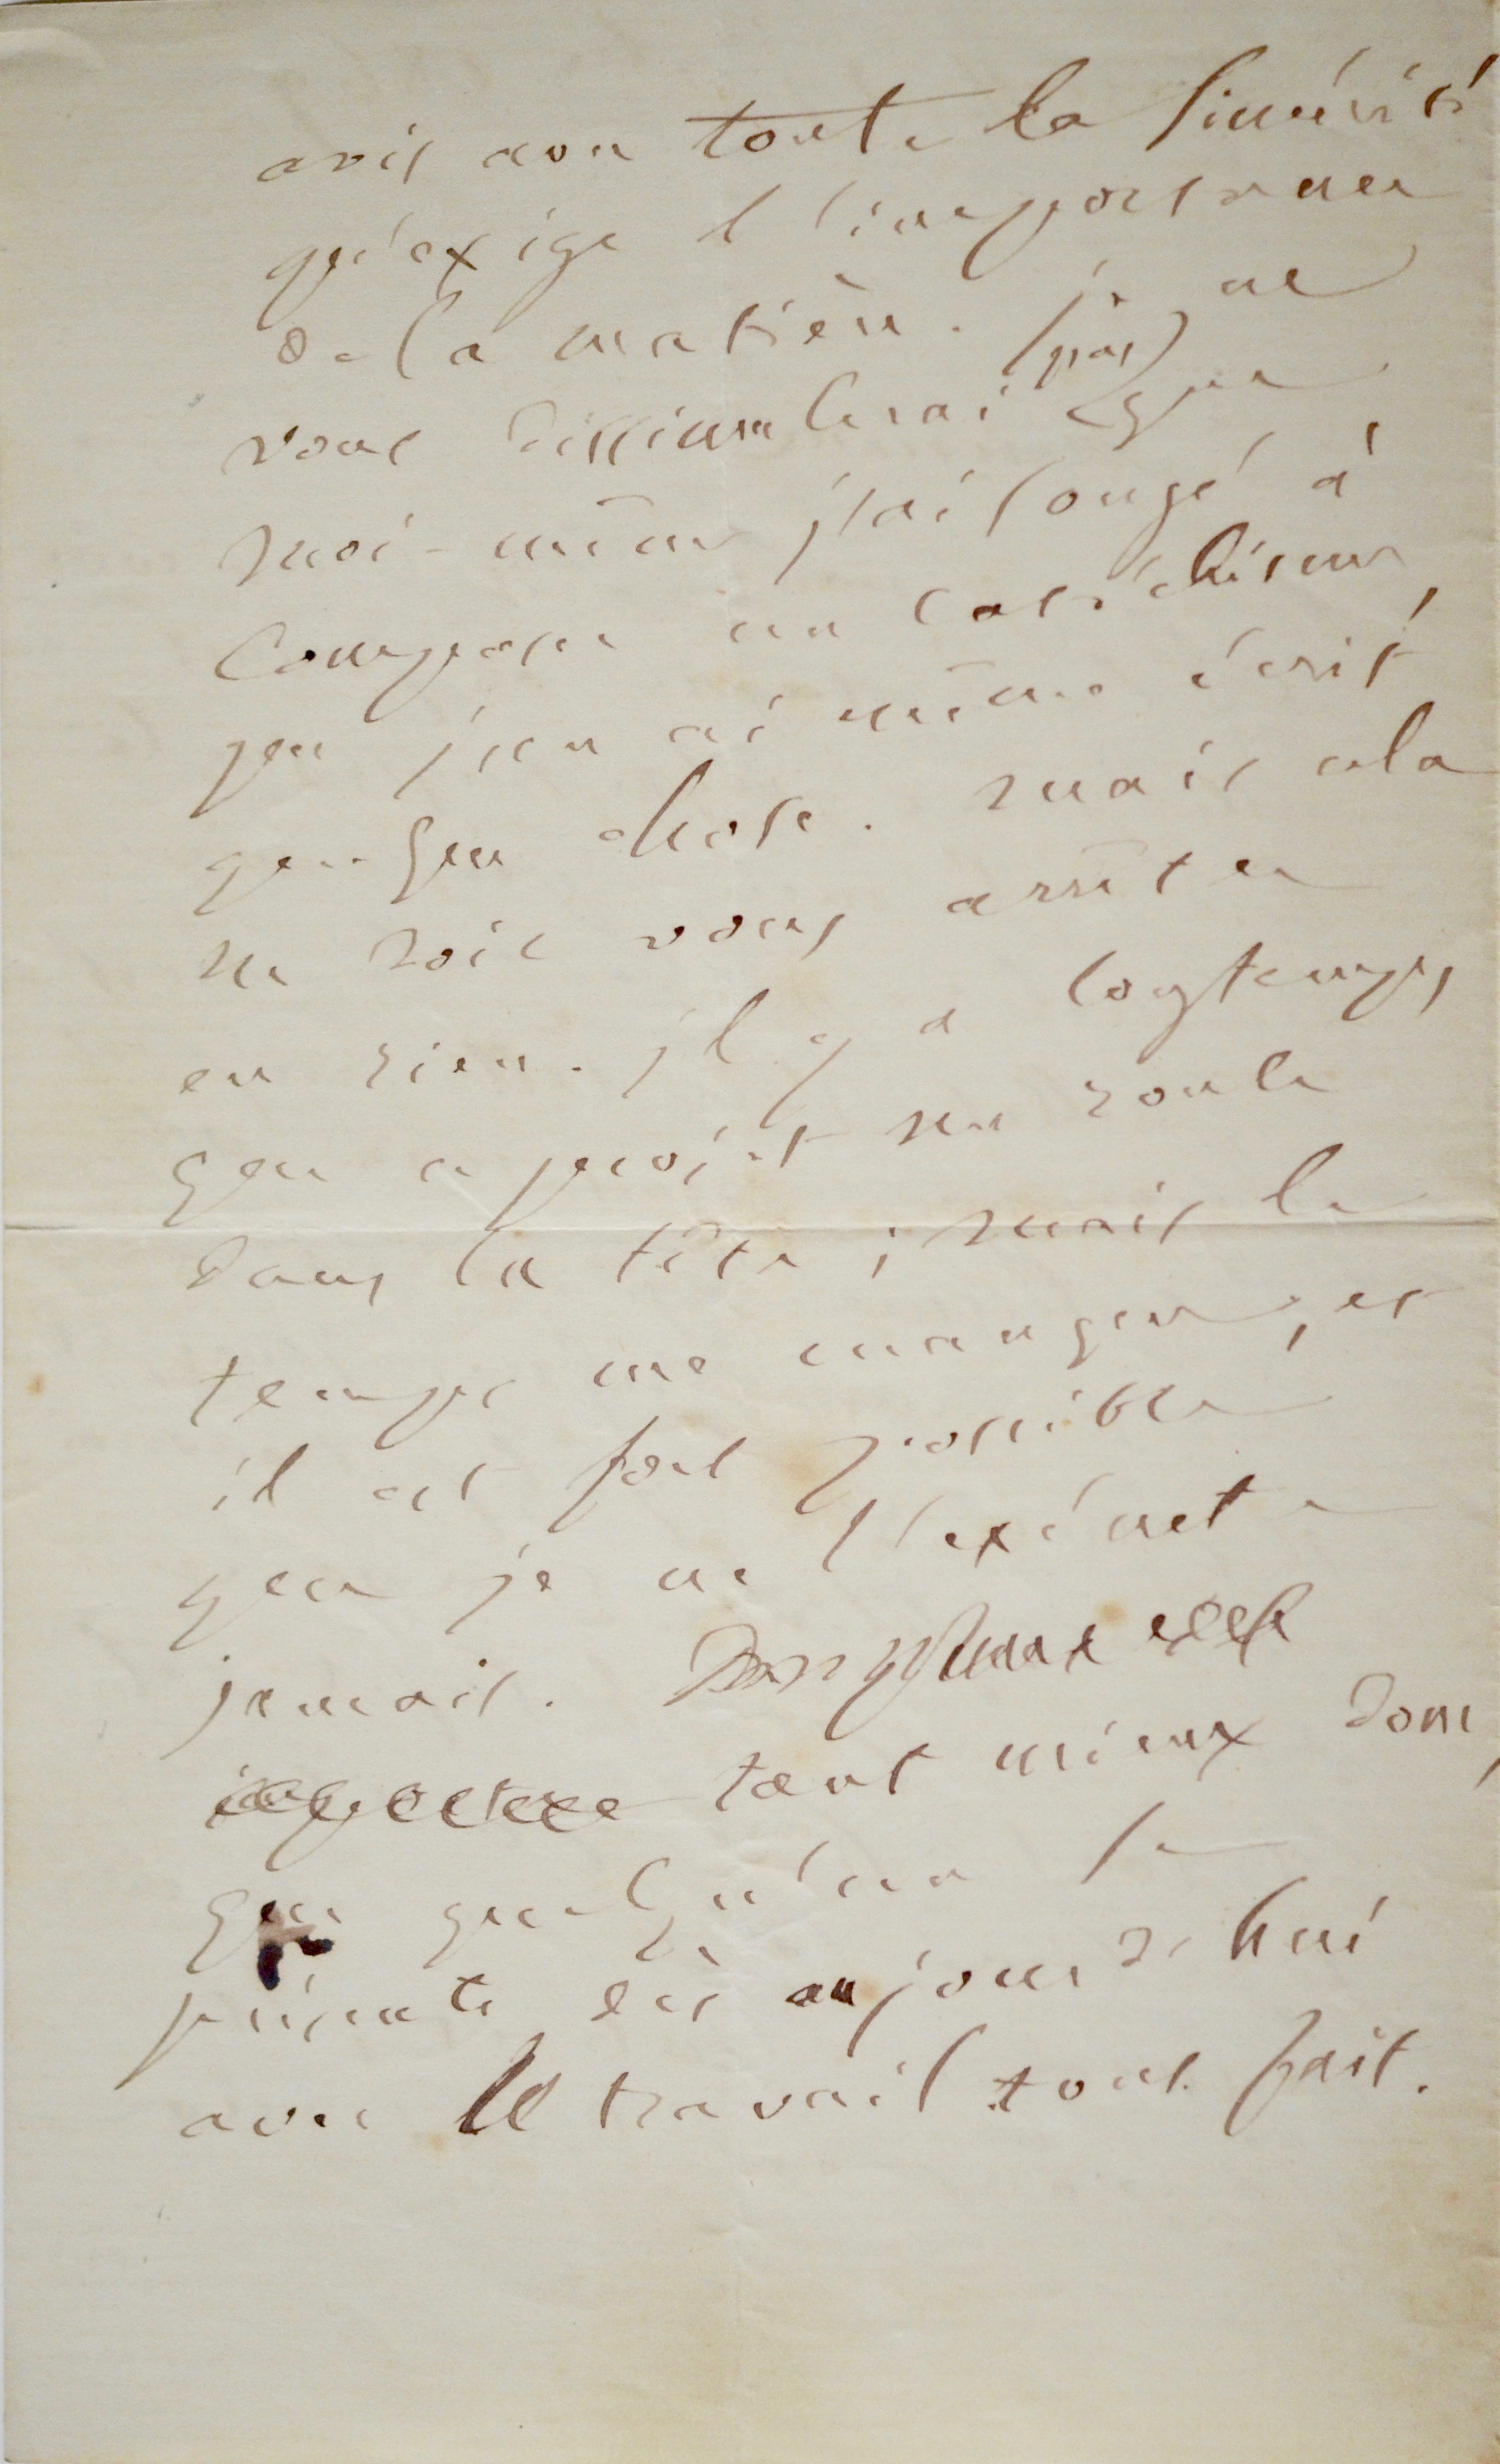 avis avec toute la sincérité
qu'exige l'importance
de la matière. je ne
vous dissimulerai (pas) que
moi-même j'ai songé à
composer un catéchisme,
que j'en ai même écrit
quelque chose. mais cela
ne doit vous arrêter
en rien. il y a longtemps
que ce projet me roule
dans la tête ; mais le
temps me manque, et
il est fort possible
que je ne l'exécute
jamais.
tant mieux donc,
que quelqu'un se
présente dès aujourd'hui
avec le travail tout fait.